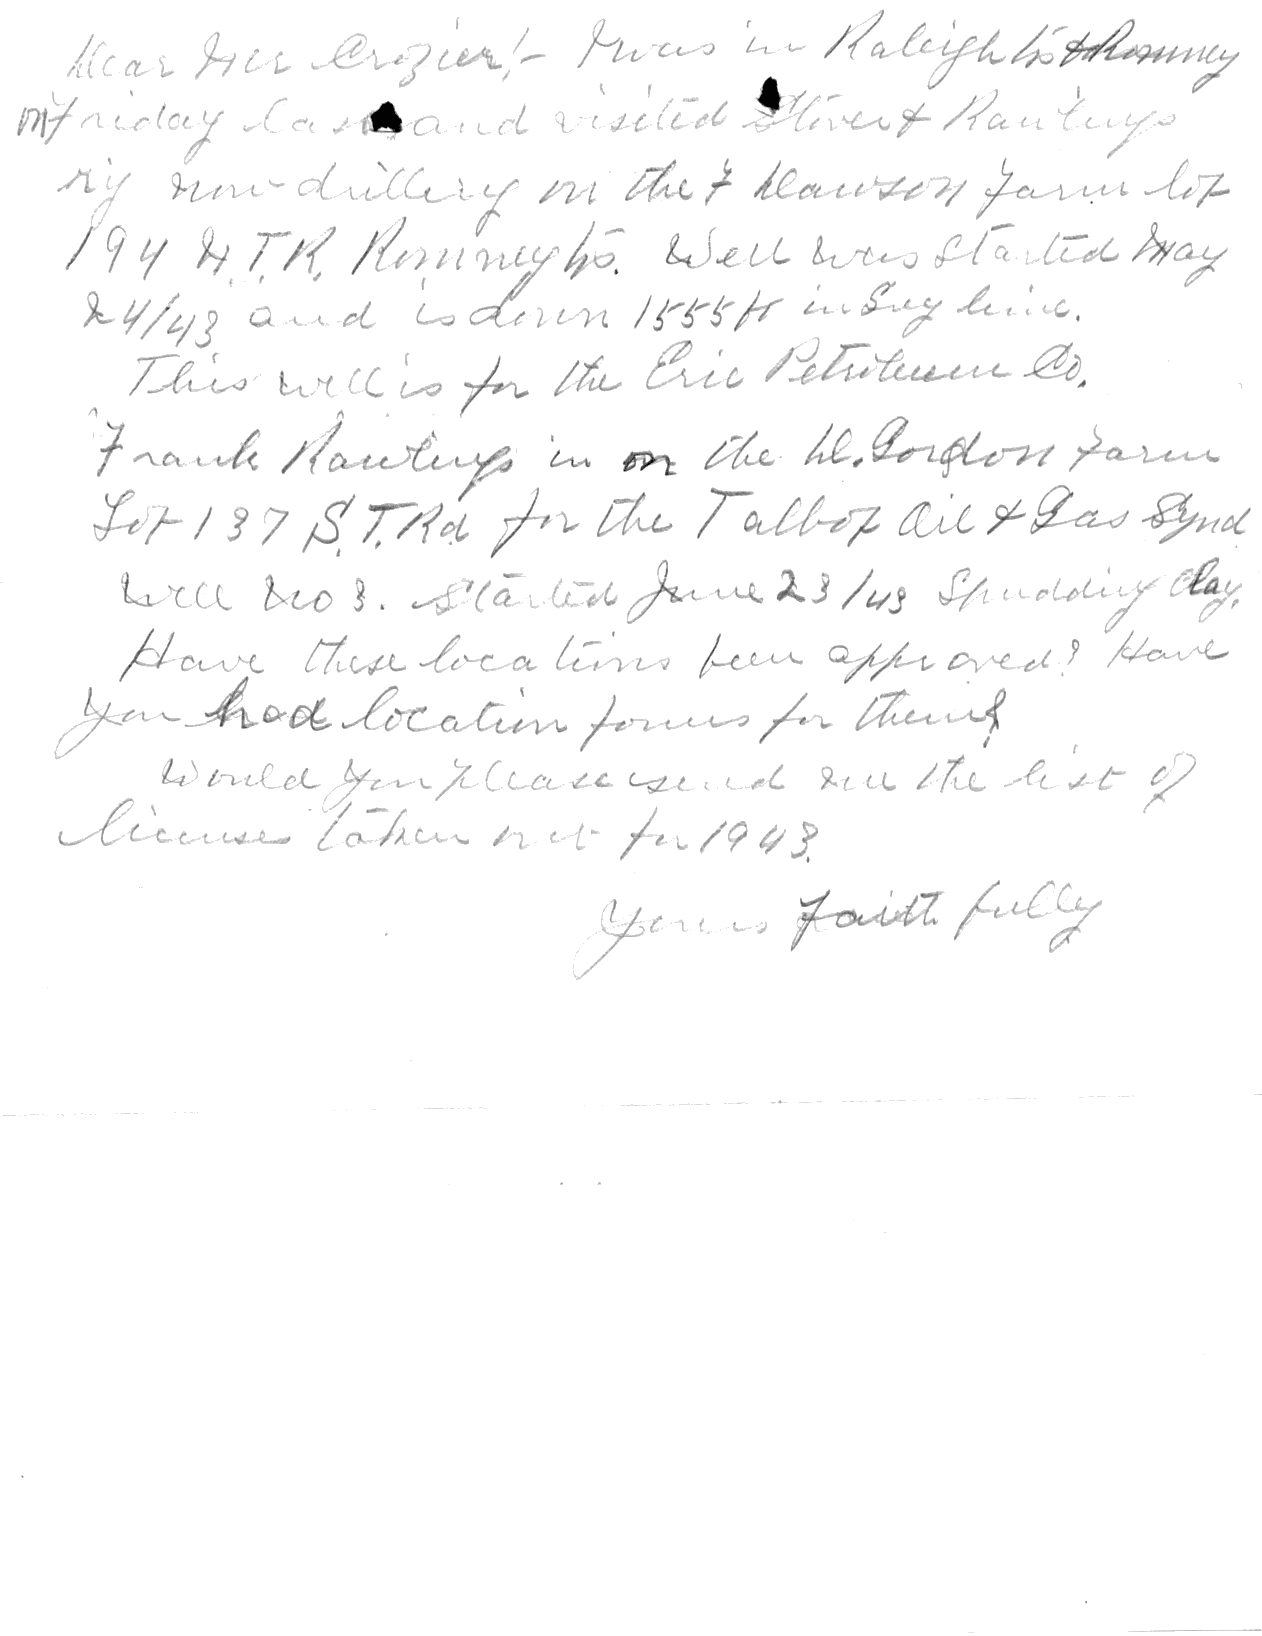 Dear Mr Crozier:- I was in Raleigh Tp & Romney
on Friday last and visited Stover & Rawlings
rig now drilling on the F Dawson Farm lot
194 N.T.R. Romney Tp. Well was started May
24/43 and is down 1555 ft in Grey lime.
This well is for the Erie Petroleum Co.
Frank Rawlings in on the D. Gordon Farm
Lot 137 S.T.Rd for the Talbot Oil & Gas Synd
Well No 3. Started June 23/43 Spudding Clay.
Have these locations been approved? Have
you had location forms for them?
Would you please send me the list of
licenses taken out for 1943.
Yours Faithfully